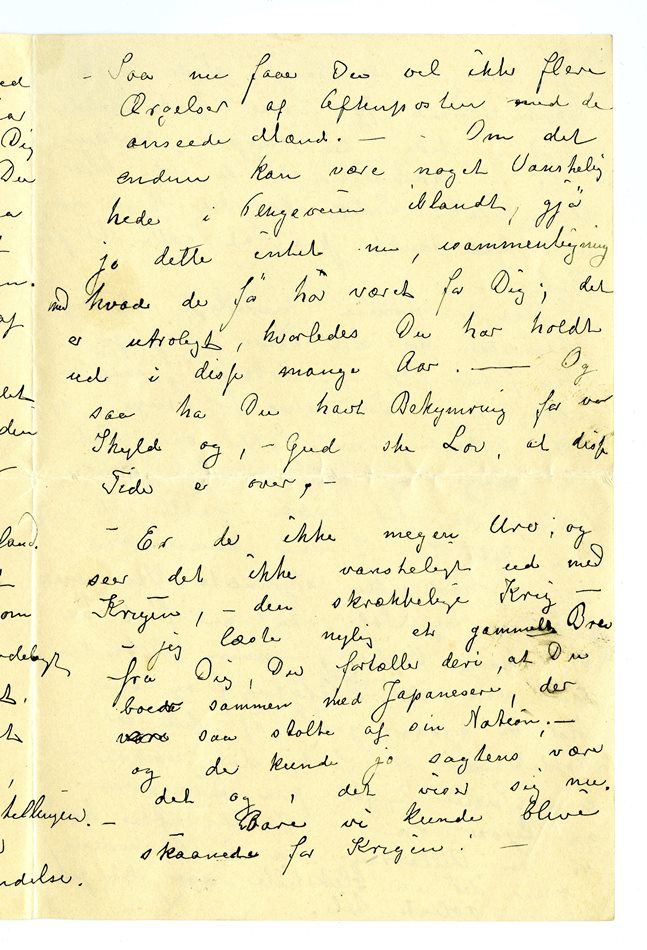 ed
ar
Dig
Du
n.
af
det
din
land.
om
t.
- Saa nu faar Du vel ikke flere
Ærgelser af Aftenposten med de
anseede Mænd. — - Om det
endnu kan være noget Vanskelig
hede i Pengeveien iblandt, gjør
jo dette intet nu, isammenligning
med hvad de før har været for Dig; det
er utroligt, hvorledes Du har holdt
ud i disse mange Aar. — Og
saa ha Du havt Bekymring for vor
Skyld og, - Gud ske Lov, at disse
Tider er over, -
- Er de ikke megen Uro; og
seer det ikke vanskeligt ud med
Krigen, - den skrækkelige Krig —
- jeg læste nylig et gammelt Brev
fra Dig, Du fortæller deri, at Du
boede sammen med Japanesere, der
vare saa stolte af sin Nation, -
og de kunde jo sagtens være
det og, det viser sig nu.
- Bare vi kunde blive
skaanede for Krigen! -
tillingen.
ndelse.